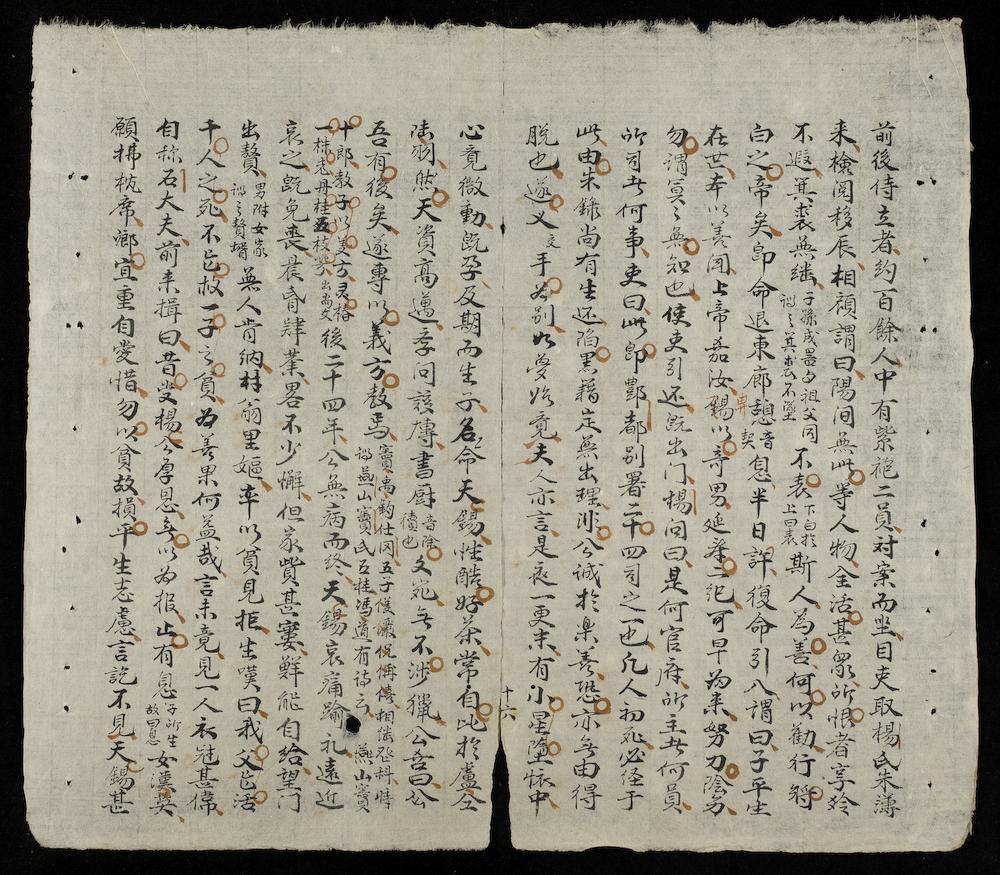 前後侍立者約百餘人中有紫袍二員対案而坐目吏取楊氏朱薄
来檢閱移辰相顧謂曰陽间無此等人物全活甚衆所恨者享龄
不遐箕裘無継子孫成器与祖父同謂之箕裘不墜不表下白於上曰表斯人為善何以勸行将
白之帝矣即命退東廊憩音契息半日許復命引入謂曰子平生
在世夲以善聞上帝嘉汝錫以竒男延筭二紀可早为来努力陰功
勿謂冥々無知也使吏引还既出门楊问曰是何官府所主者何員
所司者何事吏曰此即酆都別署二十四司之一也凢人初死必径于
此由朱錄尚有生还陷黒籍定無出理非公誠於楽善恐亦無由得
脱也遂义交手为别如夢始竟夫人亦言是夜一更末有小星墮怀中
十六
心竟微動既孕及期而生子名命天錫性酷好茶常自比於盧仝
陸羽然天資高邁斈问該博書厨音除櫝也文苑無不涉獵公喜曰公
吾有後矣遂専以義方教焉竇禹鈞仕周五子儀儼侃偁僖相継登科時謂燕山竇氏五桂馮道有詩云燕山竇
十郎教子以義方灵椿一株老丹桂五枝芳出尚友後二十四年公無病而終天錫哀痛踰礼遠近
哀之既免喪晨昏肄業畧不少懈但家貲甚窶鮮能自给望门
出贅男附女家謂之贅壻無人肯納村翁里嫗率以貧見拒生嘆曰我父能活
千人之死不能救一子之貧为善果何益哉言未竟見一人衣冠甚偉
自称石大夫前来揖曰昔受楊公厚恩無以为报止有息子所生故曰息女漢英
願拂枕席鄉宜重自愛惜勿以貧故損平生志慮言訖不見天錫甚